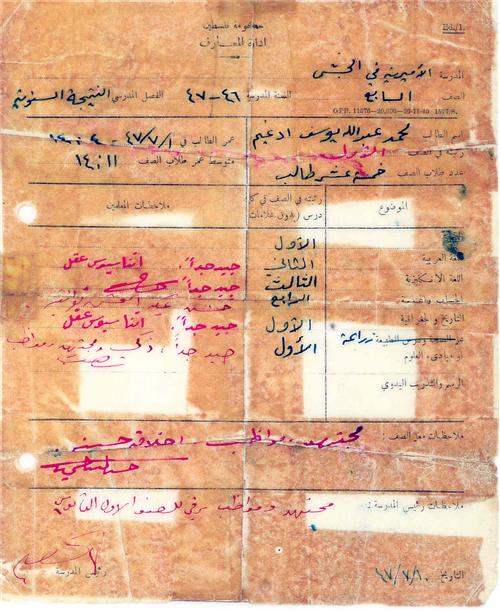 حكومة فلسطين
Ed./1.
ادارة المعارف
المدرسة الأميرية في الجش
الصف السابع للسنة المدرسية ٤٦-٤٧ الفصل المدرسي النتيجة السنوية
G.P.P. 11576—20,000—26-11-40
اسم الطالب محمد عبدالله يوسف ادغيم عمر الطالب في ٤٧/٧/١
رتبته في الصف الأول متوسط عمر طلاب الصف ١٤:١١
عدد طلاب الصف خمسة عشر طالب
الموضوع رتبته في الصف في كل درس (بدون علامات) ملاحظات المعلمين
الأول
اللغة العربية الثاني جيد جداً
اللغة الانكليزية الثالث جيد جداً
الحساب والهندسة الرابع
التاريخ والجغرافية الأول جيد جداً
زراعة الأول جيد جداً، ذكي ومجتهد ومواظب
او مبادىء العلوم
الرسم والتدريب اليدوي
ملاحظات معلم الصف : مجتهد ومواظب اخلاقه حسنة
ملاحظات رئيس المدرسة : مجتهد ومواظب يرقى للصف الاول الثانوي
التاريخ ٤٧/٧/١٠ رئيس المدرسة